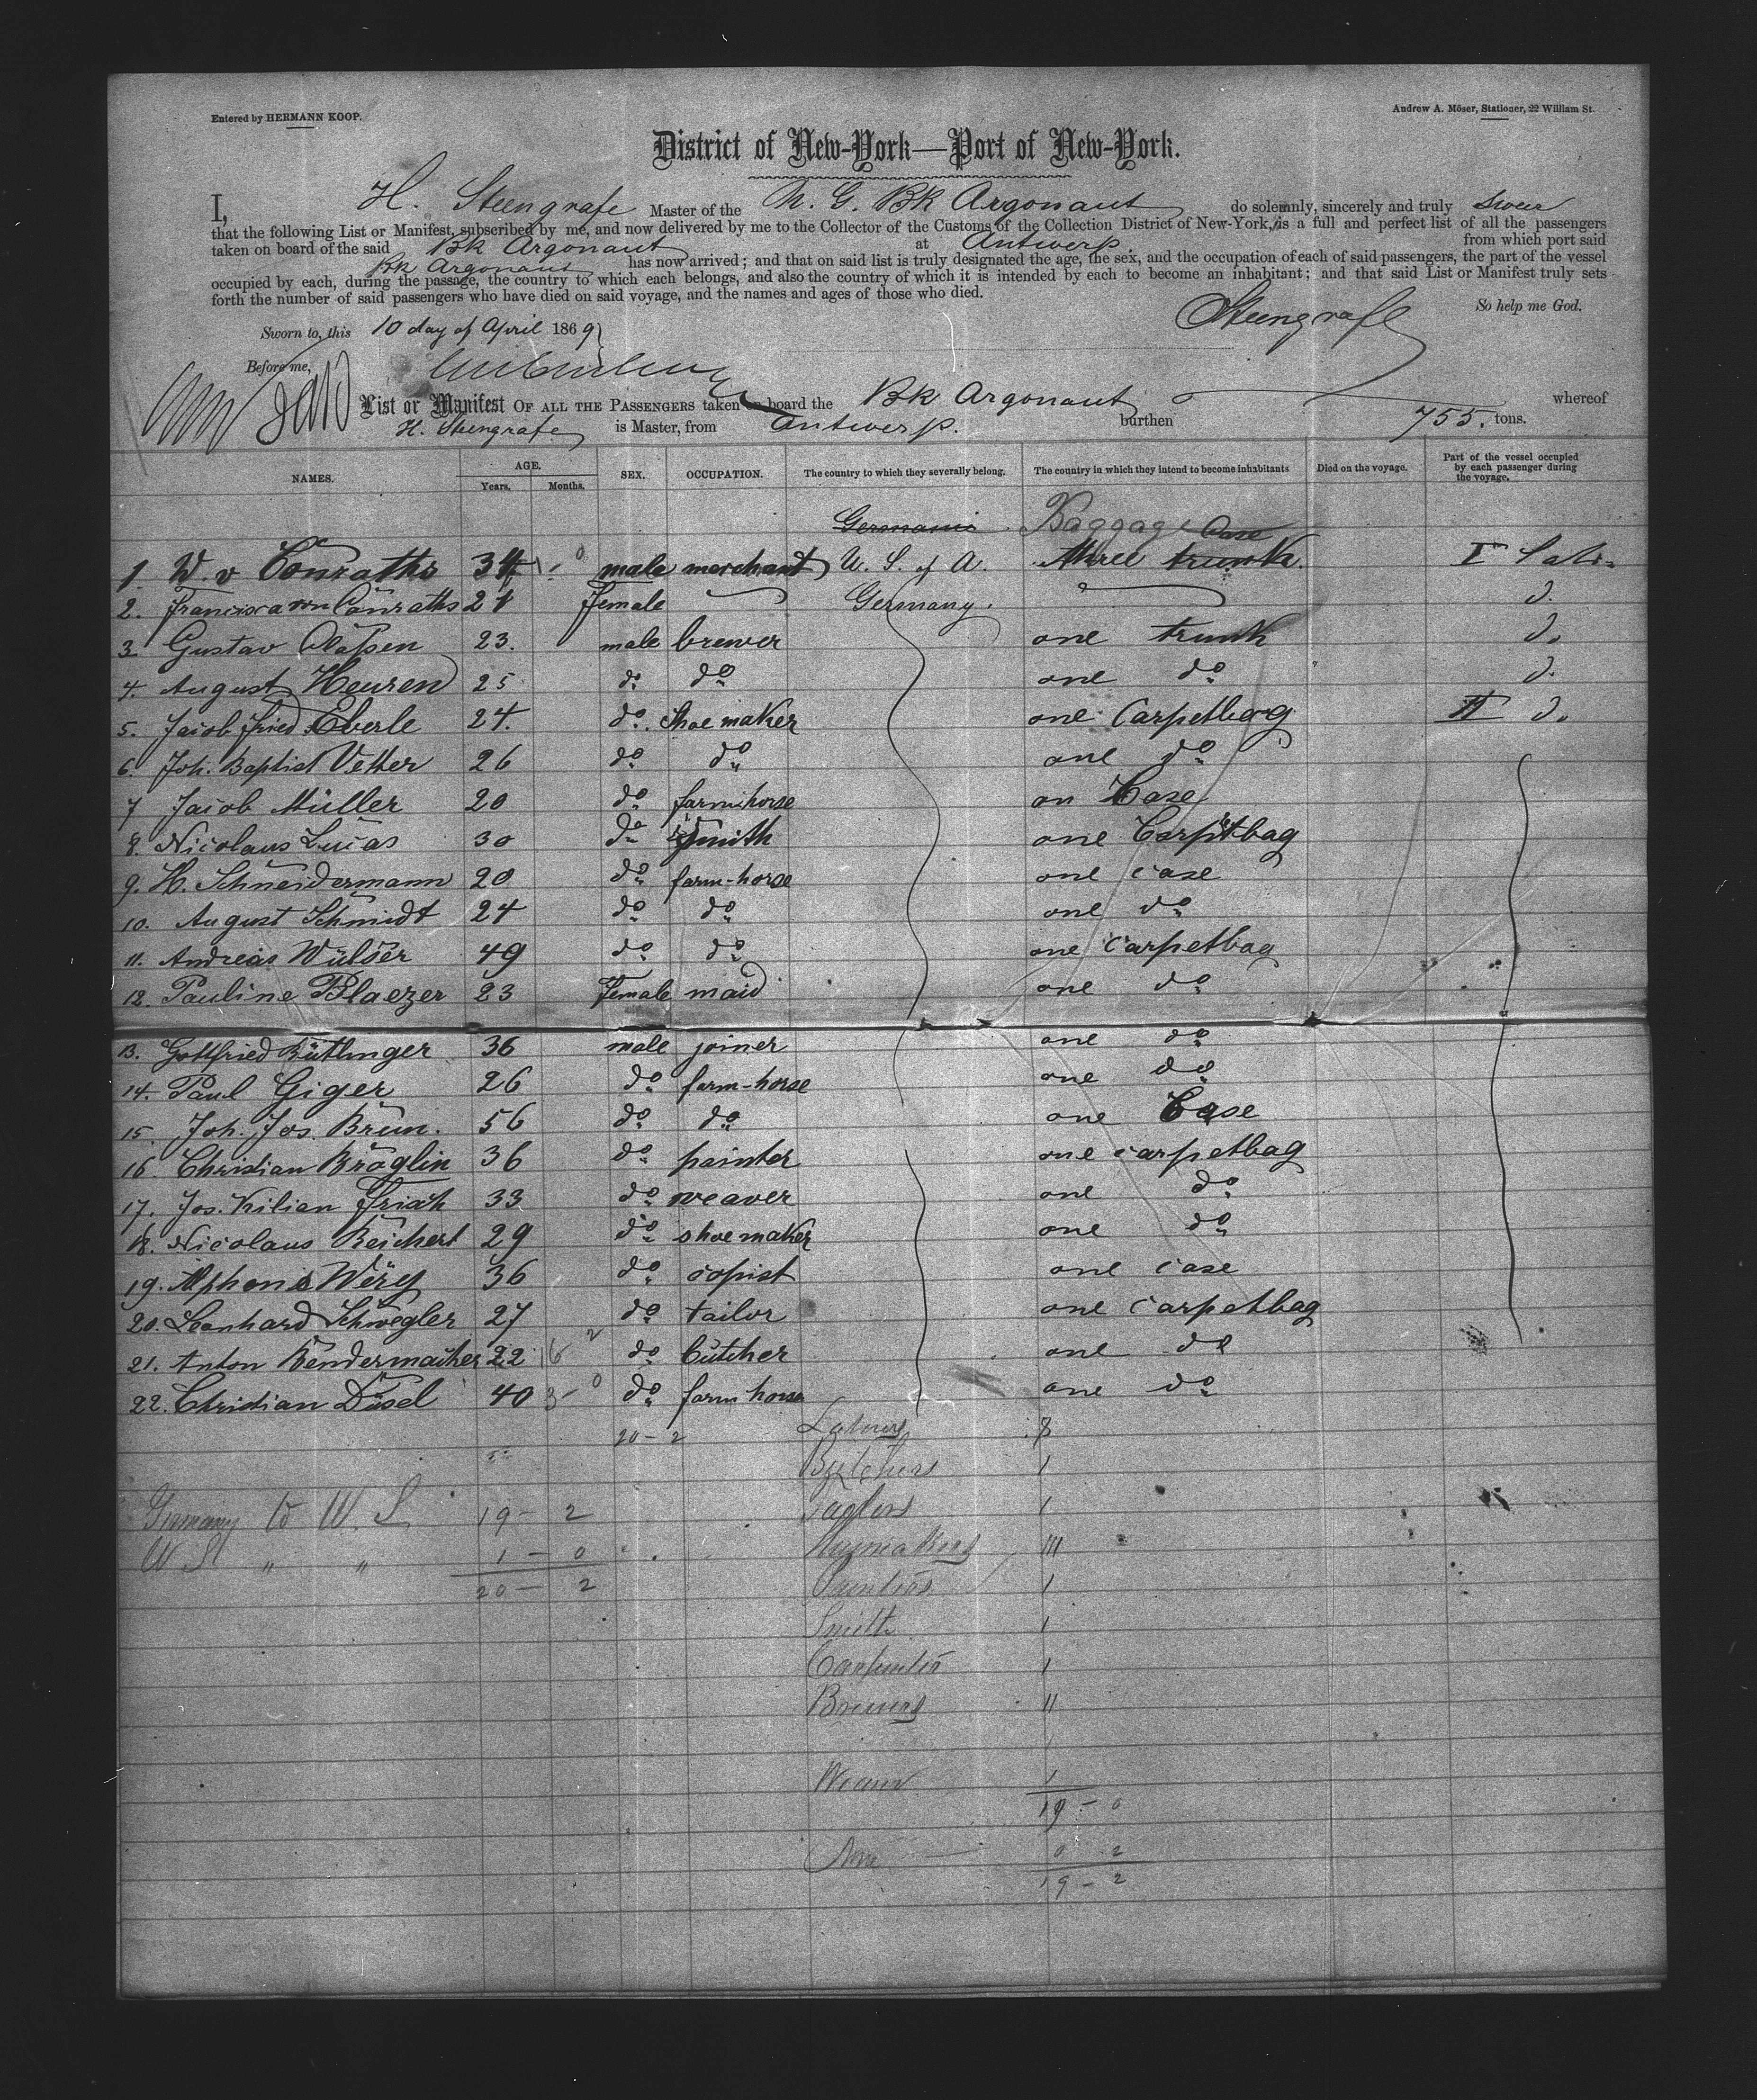 Entered by HERMANN KOOP.
Andrew A. Möser, Stationer, 22 William St.
District of New-York—Port of New-York.
I, H. Steengrafe Master of the N. G. Bk Argonaut do solemnly, sincerely and truly swear
that the following List or Manifest, subscribed by me, and now delivered by me to the Collector of the Customs of the Collection District of New-York, is a full and perfect list of all the passengers
taken on board of the said Bk Argonaut at Antwerp from which port said
Bk Argonaut has now arrived; and that on said list is truly designated the age, the sex, and the occupation of each of said passengers, the part of the vessel
occupied by each, during the passage, the country to which each belongs, and also the country of which it is intended by each to become an inhabitant; and that said List or Manifest truly sets
forth the number of said passengers who have died on said voyage, and the names and ages of those who died.
So help me God.
Steengrafe
Sworn to, this 10 day of April 1869
Before me,
List or Manifest OF ALL THE PASSENGERS taken on board the Bk Argonaut whereof
H. Steengrafe is Master, from Antwerp. burthen 755. tons.
NAMES. AGE. Years. Months. SEX. OCCUPATION. The country to which they severally belong. The country in which they intend to become inhabitants Died on the voyage. Part of the vessel occupied by each passenger during the voyage.
Germania Baggage Case
1 W. v Conraths 34 male merchant U. S. of A. three trunks. I
2. Francisca von Conraths 21 female Germany. d.
3 Gustav Claßen 23. male brewer one trunk do
4. August Heuren 25 do do one do d.
5. Jacob Fried Eberle 24. do. Shoe maker one Carpetbag II do
6. Joh. Baptist Vetter 26 do do one do
7 Jacob Müller 20 do farmhorse on Case
8. Nicolaus Lucas 30 do Smith one Carpetbag
9. H. Schneidermann 20 do farm-horse one case
10. August Schmidt 24 do do one do
11. Andreas Wülser 49 do do one carpetbag
12. Pauline Blaezer 23 Female maid one do
13. Gottfried Rütlinger 36 male joiner one do
14. Paul Giger 26 do farm-horse one do
15. Joh. Jos. Brun. 56 do do one Case
16 Christian Bröglin 36 do painter one carpetbag
17. Jos. Kilian 33 do weaver one do
18. Nicolaus Reichert 29 do shoemaker one do
19. Alphons Wery 36 do copist one case
20. Leonhard Schwegler 27 do tailor one carpetbag
21. Anton Bendermacher 22 do butcher one do
22. Christian Düsel 40 do farm horse one do
20 - 2 8
Butchers 1
Germany to U. S. 19 - 2 Taylors 1
U St " " 1 - 0 III
20 - 2 Painters 1
Smith 1
Carpenter 1
Brewers II
Weaver 1
19 - 0
None 0 2
19 - 2